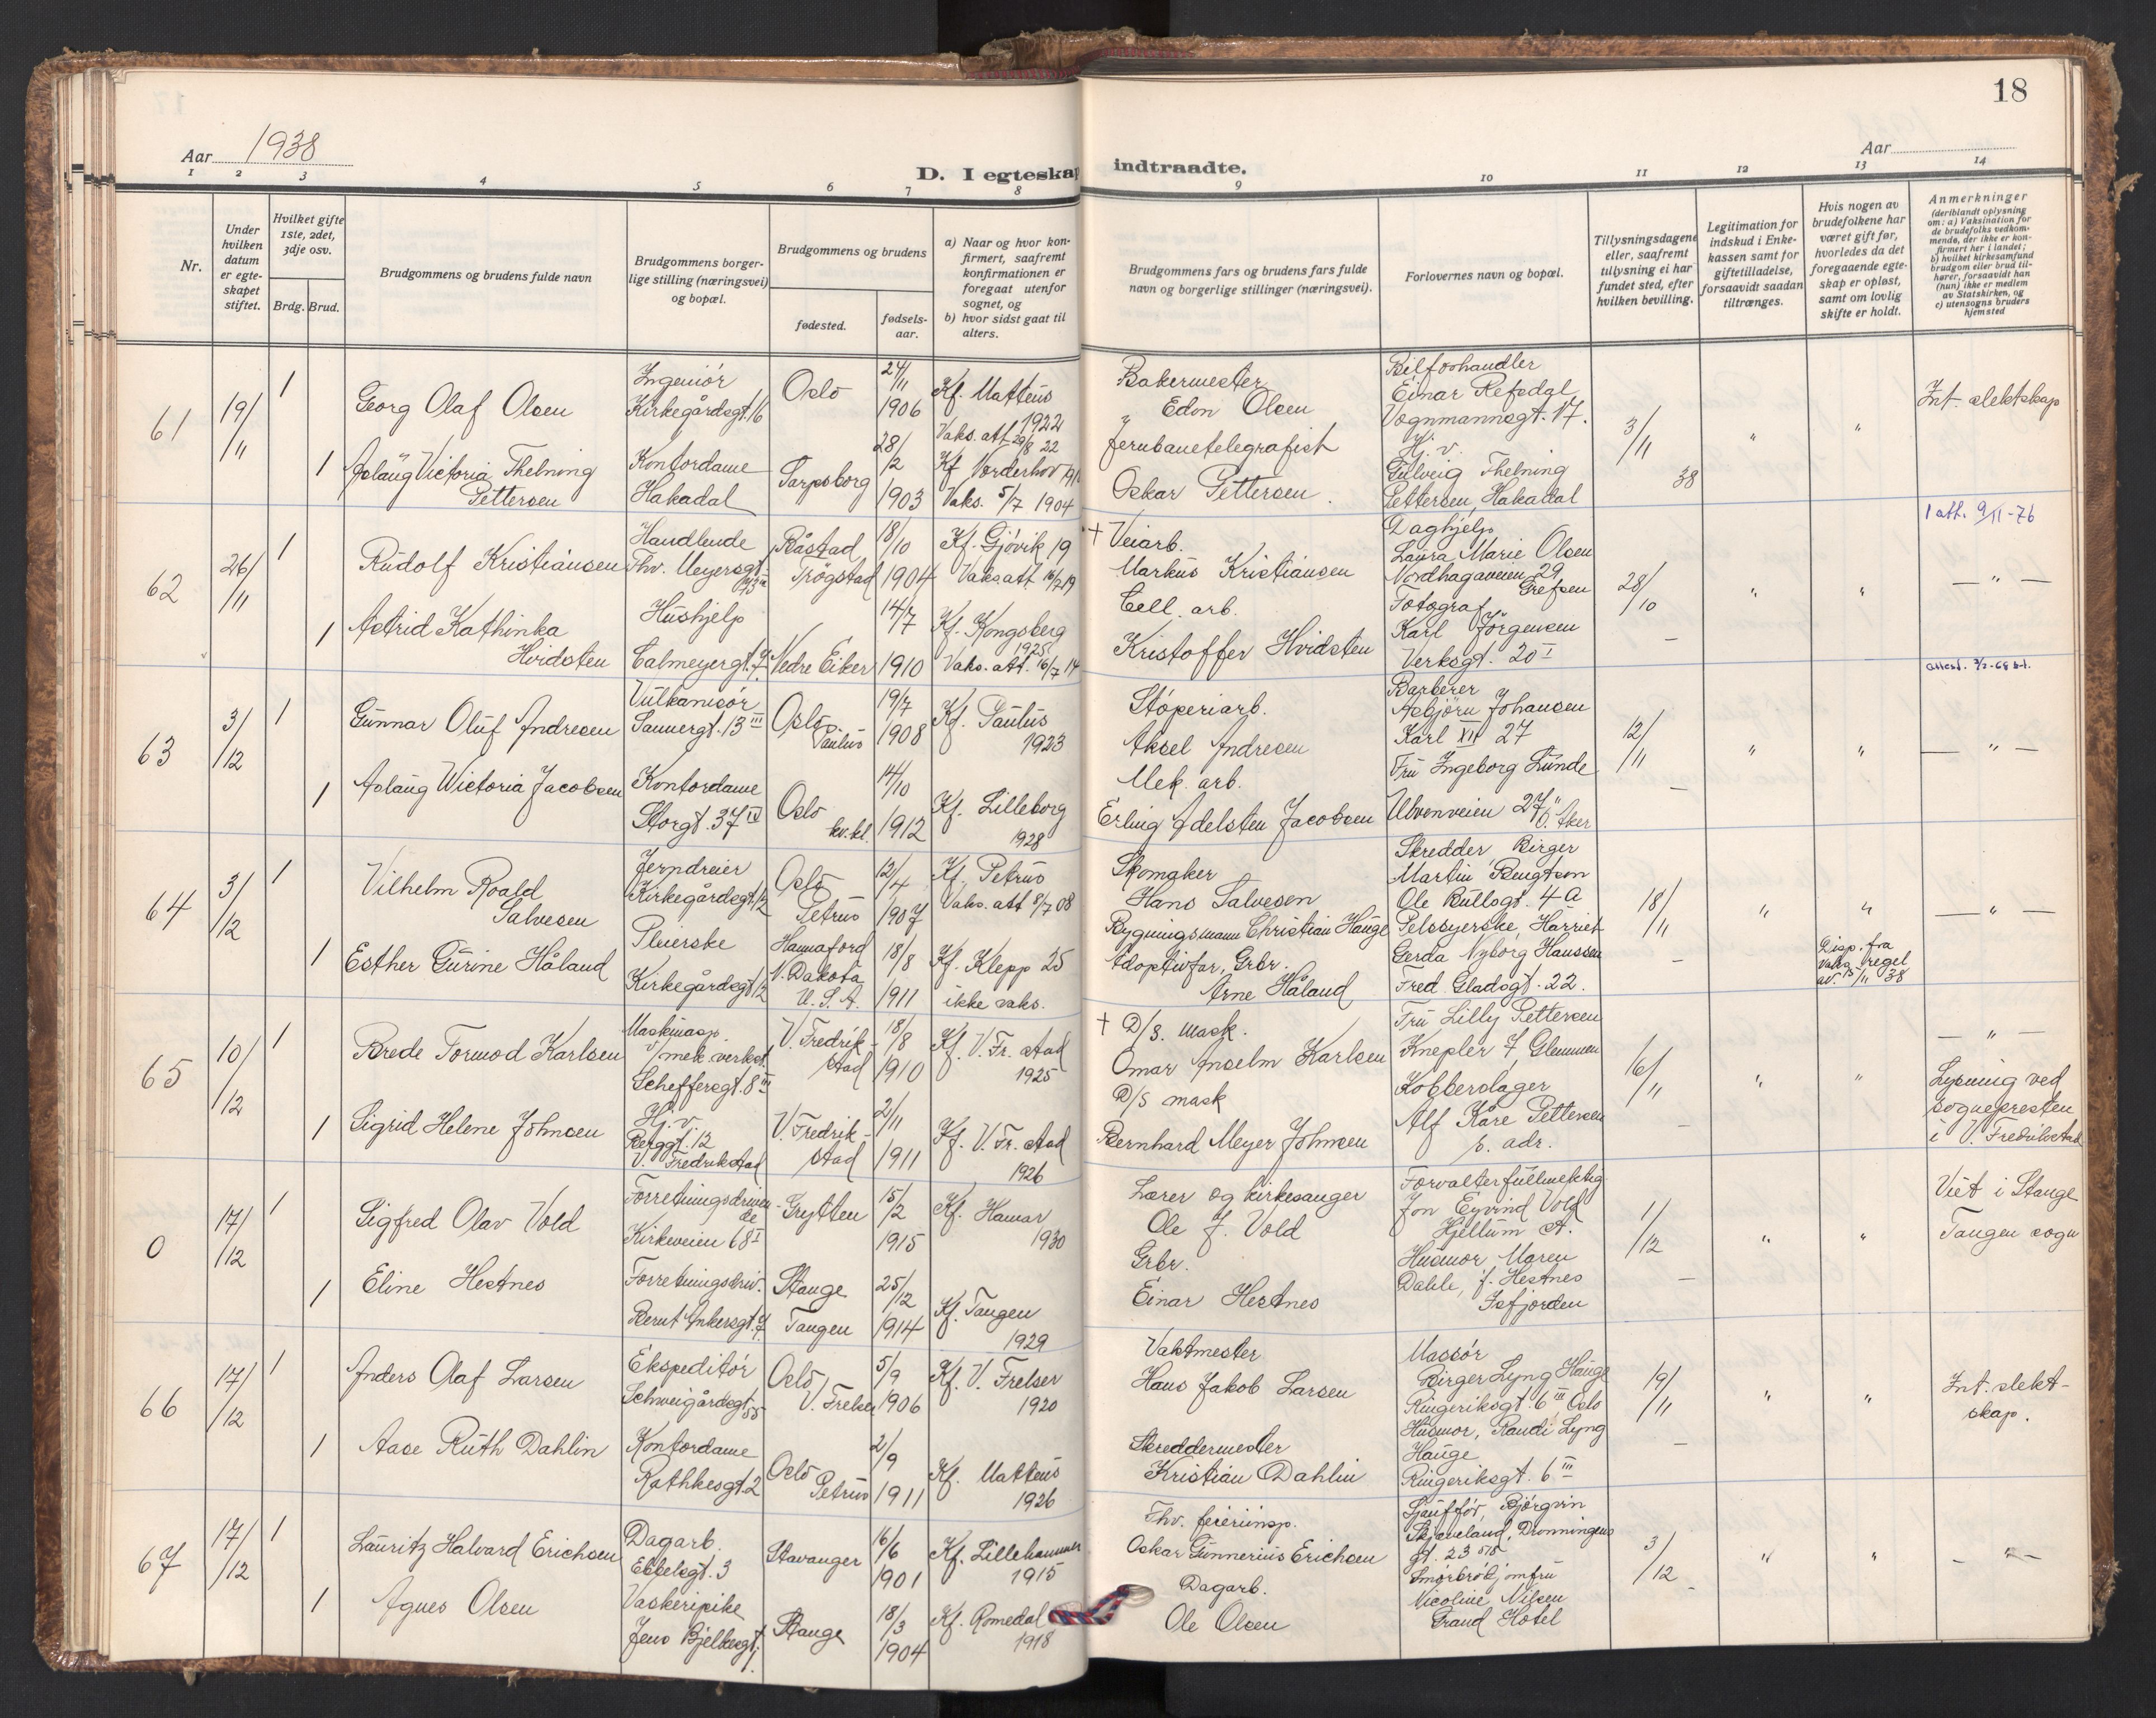 18
Aar 1938
D. I egteskap indtraadte.
Aar
1 2 3 4 5 6 7 8 9 10 11 12 13 14
Nr.
Under hvilken datum er egteskapet stiftet.
Hvilket gifte 1ste, 2det, 3dje osv.
Brdg. Brud.
Brudgommens og brudens fulde navn
Brudgommens borgerlige stilling (næringsvei) og bopæl.
Brudgommens og brudens
fødested.
fødselsaar.
a) Naar og hvor konfirmert, saafremt konfirmationen er foregaat utenfor sognet, og
b) hvor sidst gaat til alters.
Brudgommens fars og brudens fars fulde navn og borgerlige stillinger (næringsvei).
Forlovernes navn og bopæl.
Tillysningsdagene eller, saafremt tillysning ei har fundet sted, efter hvilken bevilling.
Legitimation for indskud i Enkekassen samt for giftetilladelse, forsaavidt saadan tiltrænges.
Hvis nogen av brudefolkene har været gift før, hvorledes da det foregaaende egteskap er opløst, samt om lovlig skifte er holdt.
Anmerkninger
(deriblandt oplysning om: a) Vaksination for de brudefolks vedkommende, der ikke er konfirmert her i landet; b) hvilket kirkesamfund brudgom eller brud tilhører, forsaavidt han (hun) ikke er medlem av Statskirken, og c) utensogns bruders hjemsted
61 19/11 1 Georg Olaf Olsen
Ingeniör
Kirkegårdsgt. 16
Oslo
24/11 1906
Kf. Matteus 1922
Vaks. att 29/8 22
Bakermester
Edvn Olsen
Bilforhandler
Einar Refsdal
Vognmannsgt. 17.
3/11 38
" "
Int. slektskap
1 Aslaug Victoria Thelning Pettersen
Kontordame
Hakadal
Sarpsborg
28/2 1903
Kf Norderhov
Vaks. 5/7 1904
Jernbanetelegrafist
Oskar Pettersen.
Hj. v.
Gulveig Thelning
Pettersen, Hakadal
1 att. 9/11-76
62 26/11 1 Rudolf Kristiansen
Handlende
Thv. Meyersgt.
Båstad Trøgstad
18/10 1904
Kf. Gjövik 19
Vaks att 16/7 19
+ Veiarb.
Markus Kristiansen
Daghjelp
Laura Marie Olsen
Nordhagaveien 29
Grefsen
28/10 -
" "
— " —
1 Astrid Kathinka Hvidsten
Hushjelp
Calmeyergt. 7
Nedre Eiker
14/7 1910
Kf. Kongsberg 1925
Vaks. att. 16/7 14
Cell. arb.
Kristoffer Hvidsten
Fotograf
Karl Jörgensen
Verksgt. 20 I
63 3/12 1 Gunnar Oluf Andresen
Vulkanisör
Sannergt. 13 III
Oslo Paulus
19/7 1908
Kf. Paulus 1923
Stöperiarb.
Aksel Andresen
Barberer
Asbjörn Johansen
Karl XII 27
12/11 -
" "
— " —
1 Aslaug Wictoria Jacobsen
Kontordame
Storgt. 37 IV
Oslo kv.kl.
14/10 1912
Kf. Lilleborg 1928
Mek. arb.
Erling Adelsten Jacobsen
Fru Ingeborg Lunde
Ulvenveien 27, Ö. Aker
64 3/12 1 Vilhelm Roald Salvesen
Jerndreier
Kirkegårdsgt. 12
Oslo Petrus
12/4 1907
Kf. Petrus
Vaks. att 8/7 08
Skomaker
Hans Salvesen
Skredder Birger
Martin Bengtson
Ole Bullsgt. 4 a
18/11 -
" "
— " —
1 Esther Gurine Håland
Pleierske
Kirkegårdsgt 12
Hannaford
N. Dakota
U. S. A.
18/8 1911
Kf. Klepp 25
ikke vaks.
Bygningsmann Christian Hauge
Adoptivfar, Grbr.
Arne Håland
Pelssyerske, Harriet
Gerda Nyborg Hanssen
Fred. Gladsgt. 22.
Disp. fra
vaks. regel
av 15/11 38
65 10/12 1 Brede Tormod Karlsen
Maskinasp.
v/ mek. verkst.
Scheffersgt. 8 III
V. Fredrikstad
18/8 1910
Kf. V. Fr. stad 1925
+ D/S. mask.
Omar Anselm Karlsen
Fru Lilly Pettersen
Knepler 7, Glemmen
16/11 -
" "
— " —
1 Sigrid Helene Johnsen
Hj. v.
Berggt. 12
V. Fredrikstad
V. Fredrikstad
2/11 1911
Kf. V. Fr. stad 1926
D/S mask
Bernhard Meyer Johnsen
Kobberslager
Alf Kåre Pettersen
s. adr.
Lysning ved
sognepresten
i V. Fredrikstad
0 17/12 1 Sigfred Olav Vold
Forretningsdrivende
Kirkeveien 68 I
Grytten
15/2 1915
Kf. Hamar 1930
Lærer og kirkesanger
Ole J. Vold
Forvalterfullmektig
Jon Eyvind Vold
Hjellum st.
1/12 -
" "
Viet i Stange
Tangen sogn
1 Eline Hestnes
Forretningsdriv.
Bernt Ankersgt. 7
Stange Tangen
25/12 1914
Kf. Tangen 1929
Grbr.
Einar Hestnes
Husmor Maren
Dahle, f. Hestnes
Isfjorden
66 17/12 1 Anders Olaf Larsen
Ekspeditör
Schweigårdsgt. 55
Oslo V. Frelser
5/9 1906
Kf. V. Frelser 1920
Vaktmester
Hans Jakob Larsen
Massör
Birger Lyng Hauge
Ringeriksgt. 6 III Oslo
19/11 -
" "
Int. slektskap.
1 Aase Ruth Dahlin
Kontordame
Rathkesgt. 2
Oslo Petrus
2/9 1911
Kf. Matteus 1926
Skreddermester
Kristian Dahlin
Husmor, Randi Lyng
Hauge
Ringeriksgt. 6 III
67 17/12 1 Lauritz Halvard Erichsen
Dagarb.
Ebbelsgt. 3
Stavanger
16/6 1901
Kf. Lillehammer 1915
Thv. feierinsp.
Oskar Gunnerius Erichsen
Sjafför, Björgvin
Skjæveland, Dronningensgt. 23
3/12 -
" "
— " —
1 Agnes Olsen
Vaskeripike
Jens Bjelkesgt.
Stange
18/3 1904
Kf. Romedal 1918
Dagarb.
Ole Olsen
Smörbrödjomfru
Nicoline Nilsen
Grand Hotel